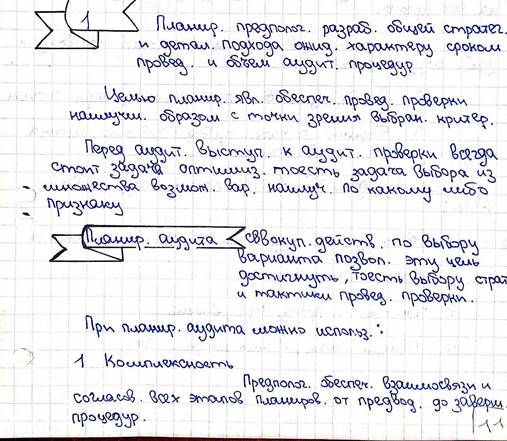 1 Планир. предполог. разраб. общей стратег.
и детал. подхода ожид. характеру сроком
провед. и объем аудит. процедур
Целью планир. явл. обеспеч. провед. проверки
наилучш. образом с точки зрения выбран. критер.
Перед аудит. выступ. к аудит. проверки всегда
стоит задача оптимиз. тоесть задача выбора из
множества возмож. вар. наилуч. по какому либо
признаку
Планир. аудита совокуп. действ. по выбору
варианта позвол. эту цель
достигнуть, тоесть выбору страт
и тактики провед. проверки.
При планир. аудита можно использ. :
1 Комплексность
Предполог. обеспеч. взаимосвязи и
согласов. всех этапов планиров. от предвод. до заверш.
процедур.
11